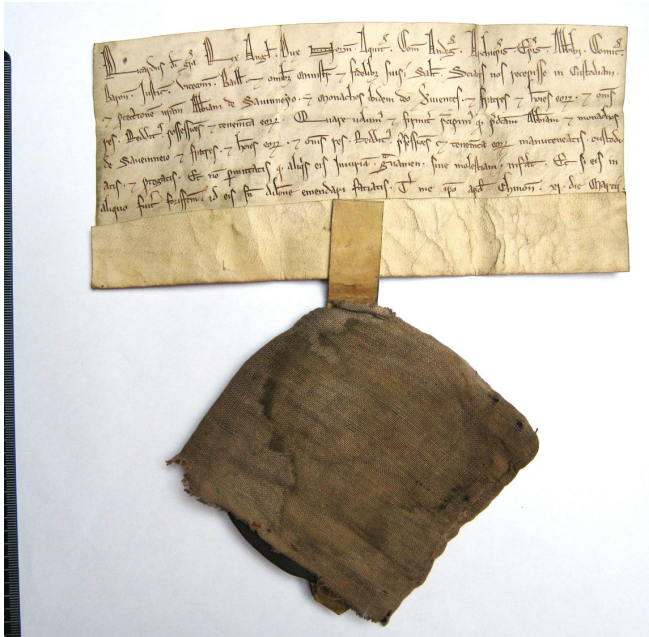 Ricardus di gra Rex Angl. Dux Norm. Aquit. Com Andeg. Archiepis. Epis. Abbibz. Comit.
Baron. Justic. Vicecom. Ball. ⁊ omibz ministr ⁊ fidelibz suis. Salt. Sciatis nos recepisse in Custodiam.
⁊ protectione nram Abbiam de Savinneyo. ⁊ monachos ibidem do Servientes. ⁊ fratres ⁊ hoies eorꝝ. ⁊ omes
res. Redditus possessiones ⁊ tenementa eorꝝ. Quare volum ⁊ firmit precipim qd predictam Abbiam ⁊ monachos
de Savenneio ⁊ fratres ⁊ hoies eorꝝ. ⁊ omes res. Redditus possessiones ⁊ tenementa eorꝝ manuteneatis. custodi
atis. ⁊ protegatis. Et no permittatis qd aliqs eis Injuria. Gravamen. sive molestiam. inferat. Et si eis in
aliquo fuit forisfcm. id eis sn dilone emendari faciatis. T. me ipo apd Chinon. xi. die Marcij.